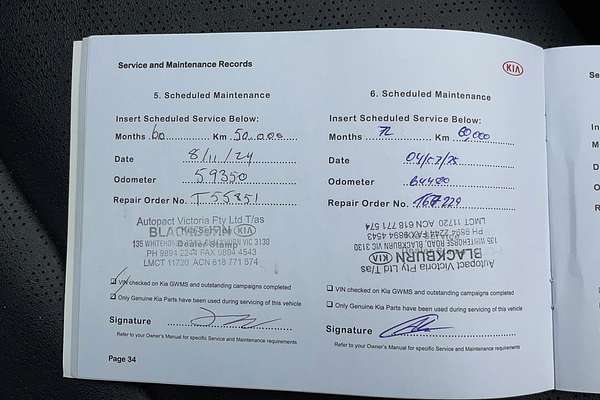 Service and Maintenance Records
KIA
5. Scheduled Maintenance
Insert Scheduled Service Below:
Months 60 Km 50.000
Date 8/11/24
Odometer 59350
Repair Order No. T55851
Autopact Victoria Pty Ltd T/as
BLACKBURN KIA
Dealer Stamp
135 WHITEHORSE ROAD, BLACKBURN VIC 3130
PH 9894 2244 FAX 9894 4543
LMCT 11720 ACN 618 771 574
VIN checked on Kia GWMS and outstanding campaigns completed
Only Genuine Kia Parts have been used during servicing of this vehicle
Signature
Refer to your Owner's Manual for specific Service and Maintenance requirements
Page 34
6. Scheduled Maintenance
Insert Scheduled Service Below:
Months 72 Km 60,000
Date
Odometer 64480
Repair Order No.
Autopact Victoria Pty Ltd T/as
BLACKBURN KIA
135 WHITEHORSE ROAD, BLACKBURN VIC 3130
PH 9894 2244 FAX 9894 4543
LMCT 11720 ACN 618 771 574
VIN checked on Kia GWMS and outstanding campaigns completed
Only Genuine Kia Parts have been used during servicing of this vehicle
Signature
Refer to your Owner's Manual for specific Service and Maintenance requirements